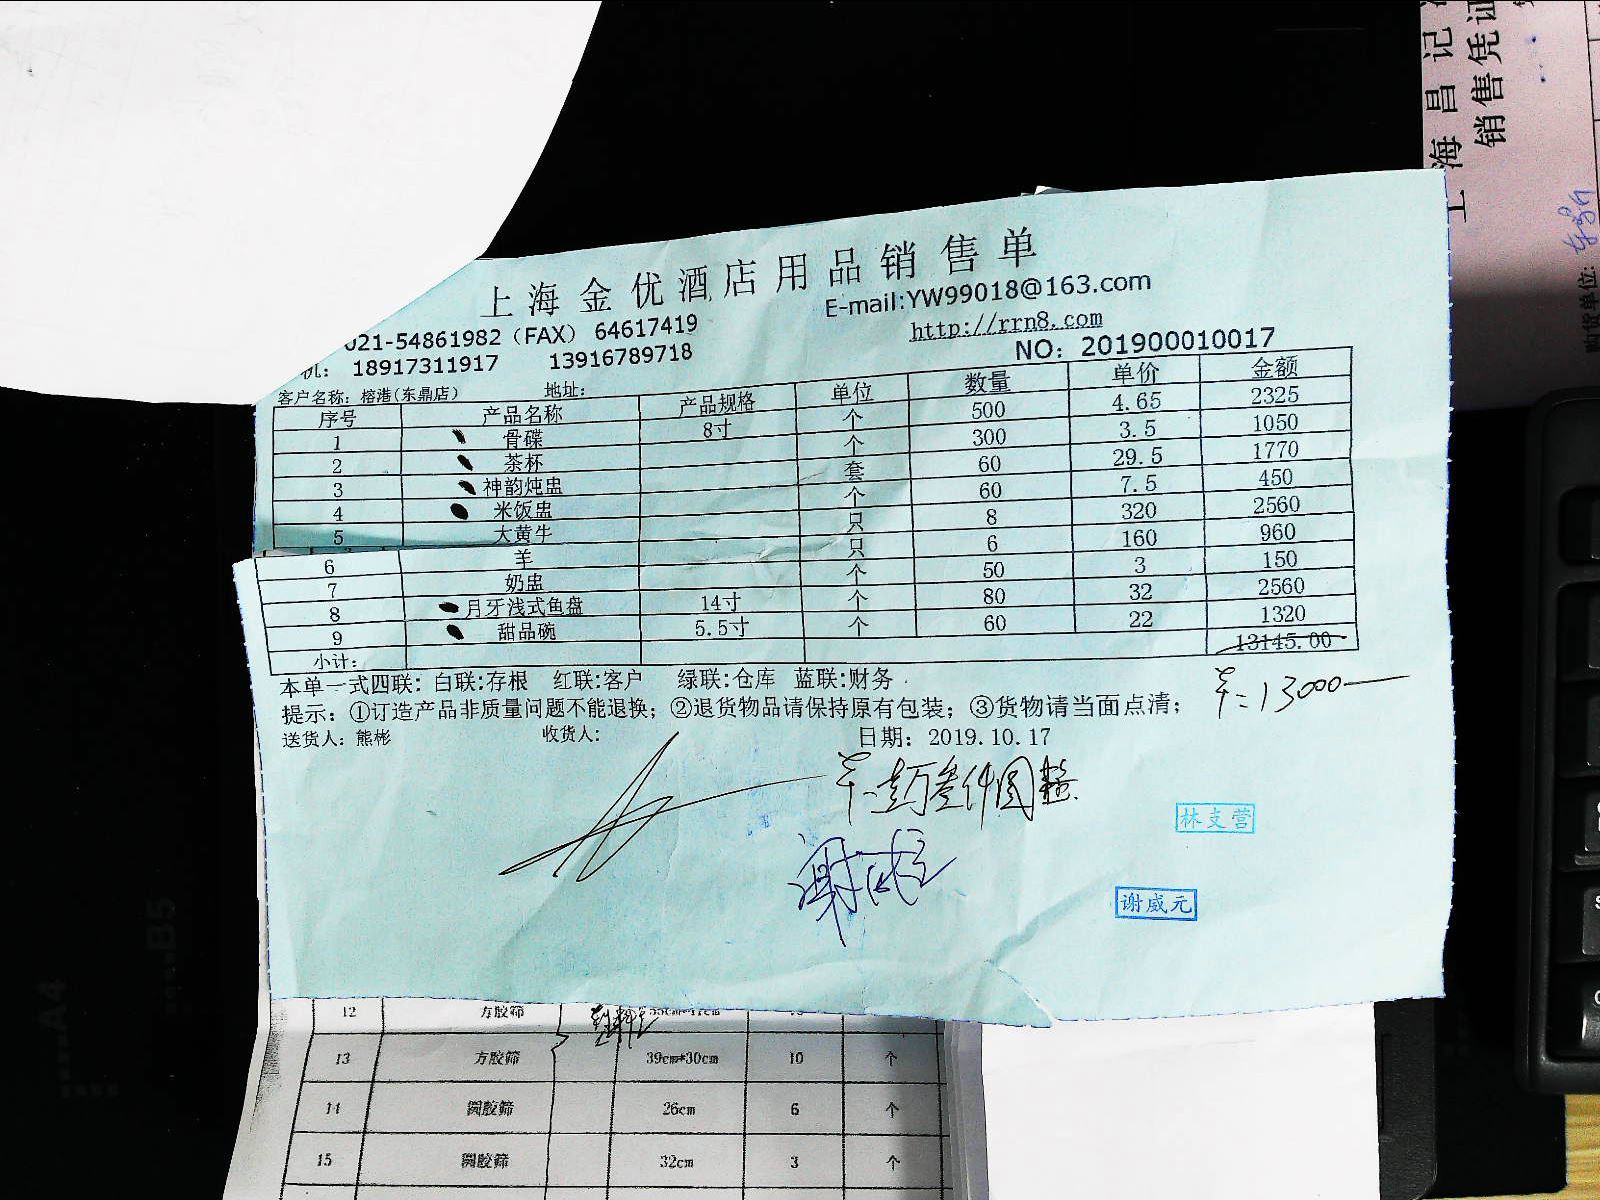 上海金优酒店用品销售单
E-mail:YW99018@163.com
021-54861982（FAX） 64617419
http://rrn8.com
机： 18917311917 13916789718
NO: 201900010017
客户名称: 榕港(东鼎店) 地址:
序号 产品名称 产品规格 单位 数量 单价 金额
1 骨碟 8寸 个 500 4.65 2325
2 茶杯 个 300 3.5 1050
3 神韵炖盅 套 60 29.5 1770
4 米饭盅 个 60 7.5 450
5 大黄牛 只 8 320 2560
6 羊 只 6 160 960
7 奶盅 个 50 3 150
8 月牙浅式鱼盘 14寸 个 80 32 2560
9 甜品碗 5.5寸 个 60 22 1320
小计: 13145.00
本单一式四联: 白联:存根 红联:客户 绿联:仓库 蓝联:财务
13000
提示: ①订造产品非质量问题不能退换; ②退货物品请保持原有包装; ③货物请当面点清;
送货人: 熊彬 收货人: 日期: 2019.10.17
壹万叁仟圆整
林支营
谢威元
12 方胶筛
13 方胶筛 39cm*30cm 10 个
14 圆胶筛 26cm 6 个
15 圆胶筛 32cm 3 个
上海昌记
销售凭证
购货单位:
A4
B5